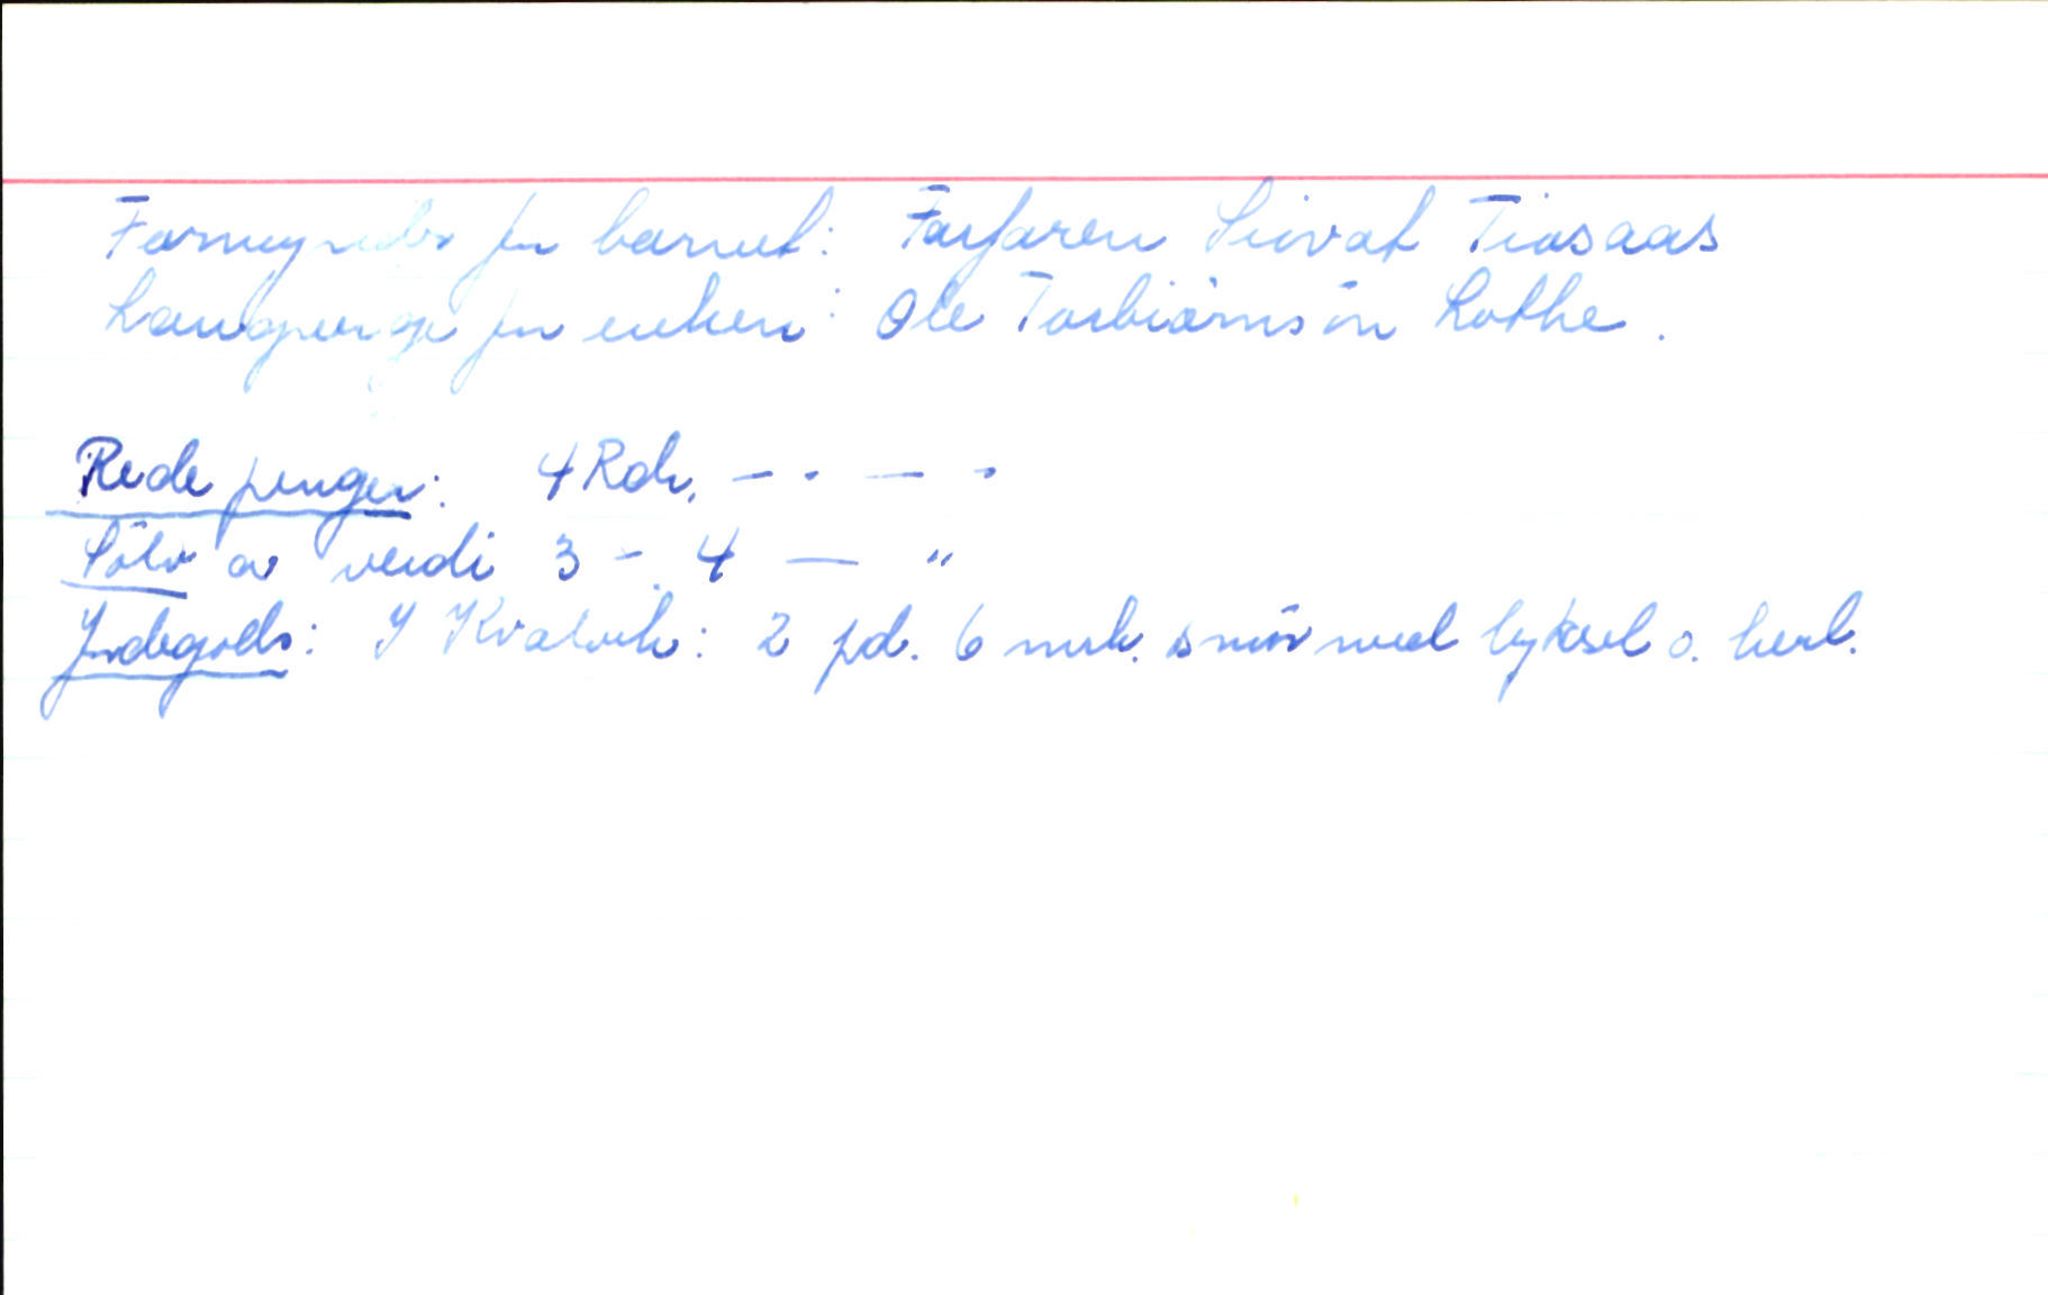 Formynder for barnet: Farfaren Siovat Tiosaas
Laugverge for enken: Ole Torbiørnsön Lothe.
Rede penger: 4 Rdr. - - - -
Sölv av verdi 3 - 4 — "
Jordegods: I Kvalvik: 2 pd. 6 mrk. smör med byksel o. herl.